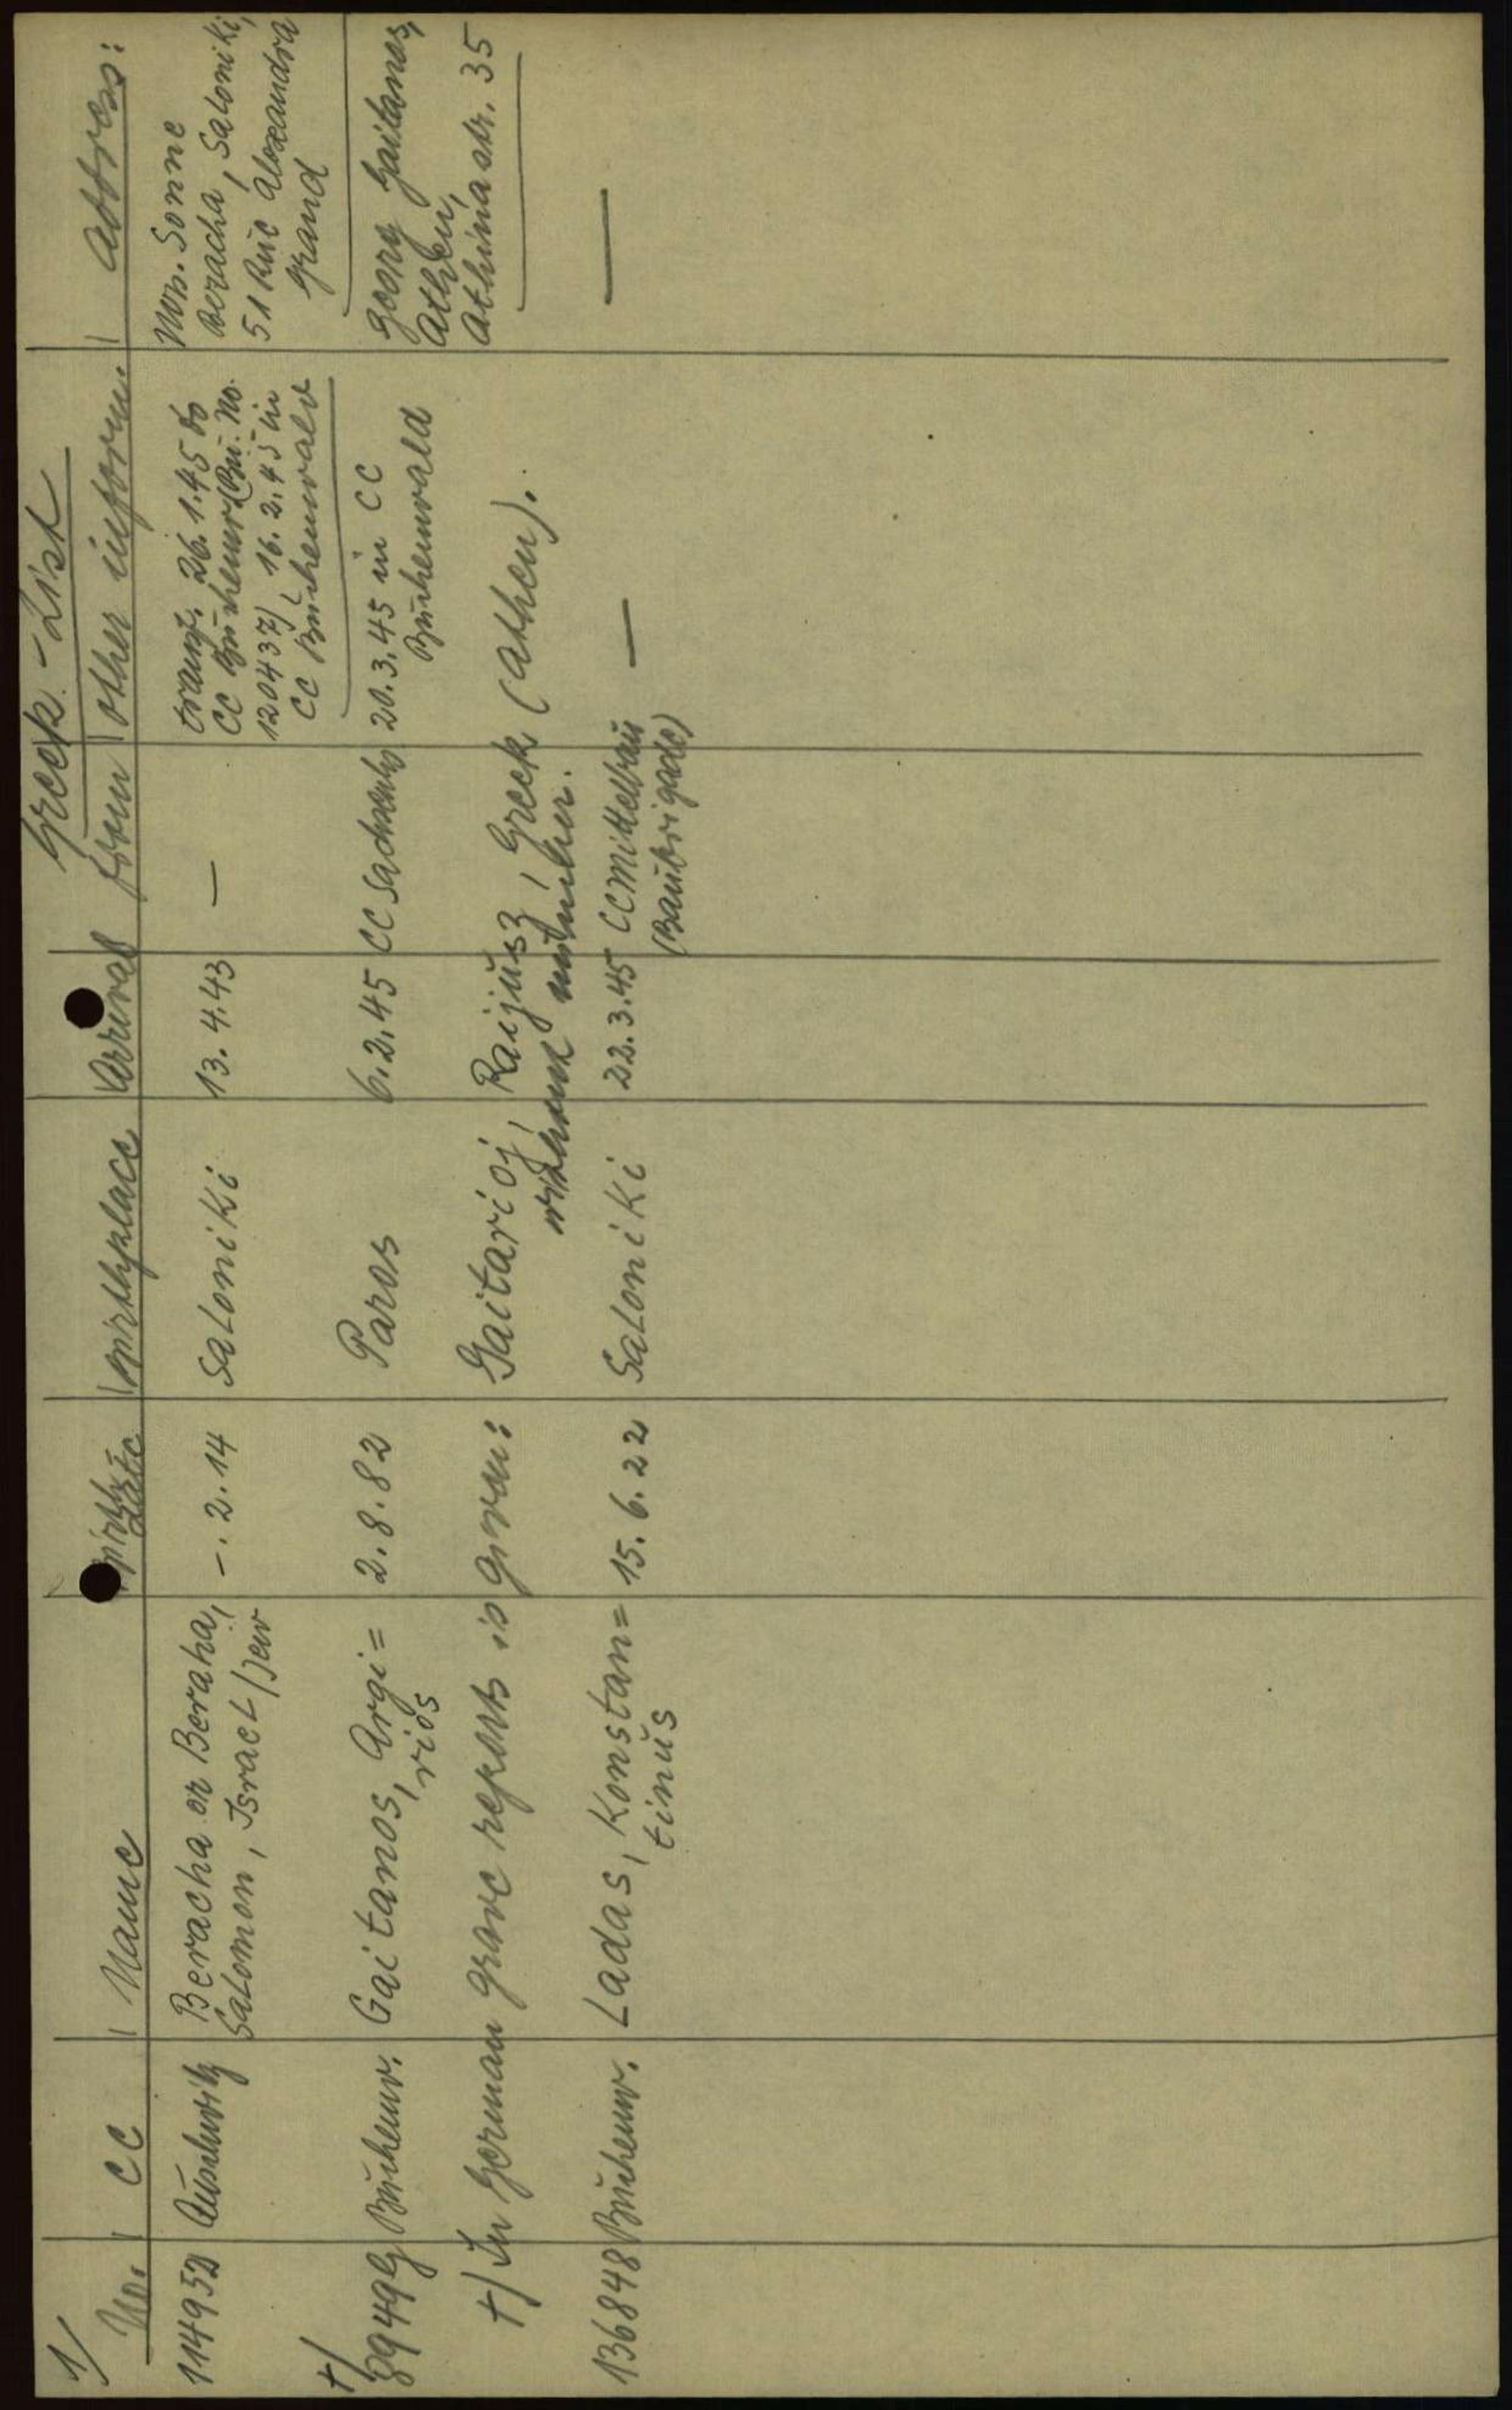 1/
Greek - List
No. | CC | Name | Birth-date | Birthplace | Arrival | from | other inform. | Address:
114952 Auschwitz Beracha or Beraha, -. 2. 14 Saloniki 13. 4. 43 — transf. 26. 1. 45 to Mon. Sonne
Salomon, Israel / Jew CC Buchenw. (Bu. No. Beracha, Saloniki,
120437), 16. 2. 45 in 51 Rue Alexandra
CC Buchenwald Grand
+/
8949 Buchenw. Gaitanos, Argi= 2. 8. 82 Paros 6. 2. 45 CC Sachsenh 20. 3. 45 in CC Georg Gaitanos,
rios Buchenwald Athen,
Athinastr. 35
+/ In German grave reports is given: Gaitarioj, Raijusz, Greek (Athen).
without number.
136848 Buchenw. Ladas, Konstan= 15. 6. 22 Saloniki 22. 3. 45 CC Mittelbau — —
tinus (Baubrigade)